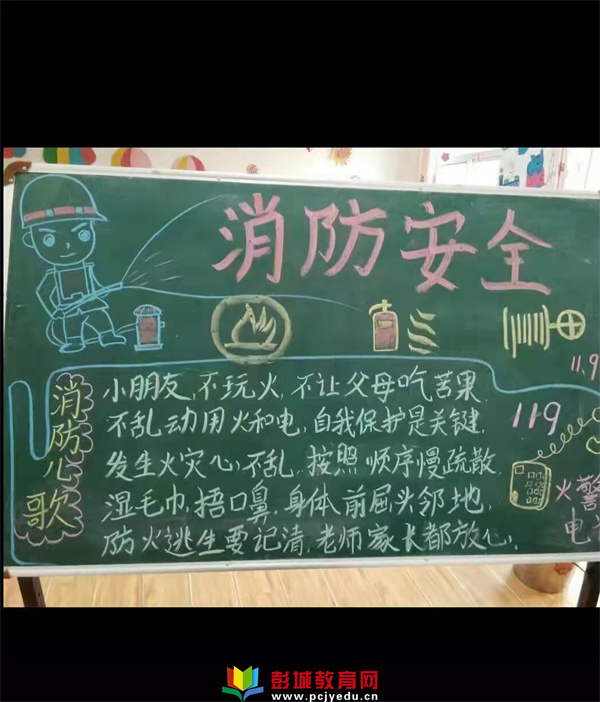 消防安全
消防心歌
小朋友,不玩火,不让父母吃苦果.
不乱动用火和电,自我保护是关键,
发生火灾心不乱,按照顺序慢疏散.
湿毛巾,捂口鼻,身体前屈头邻地,
防火逃生要记清,老师家长都放心,
11.9
119
火警
电
彭城教育网
www.pcjyedu.cn